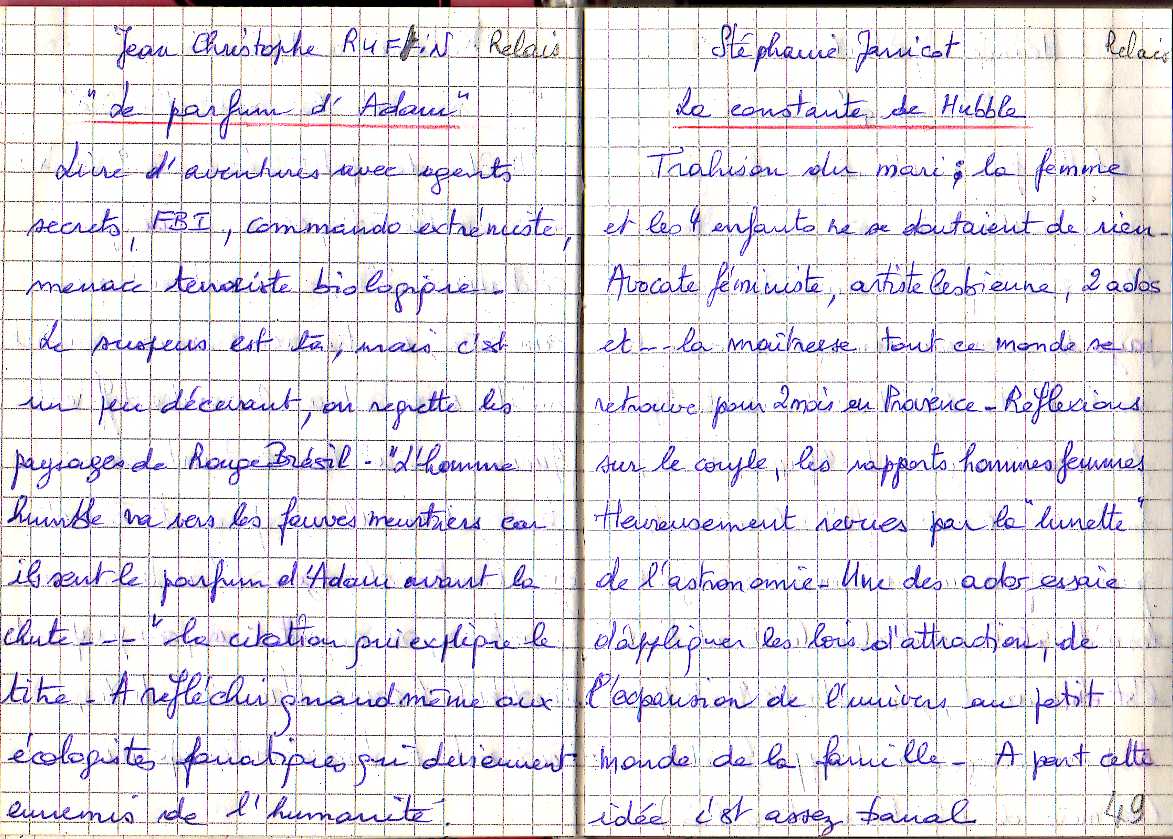 Jean Christophe RUFFiN Relais
"Le parfum d'Adam"
Livre d'aventures avec agents
secrets, FBI, commando extrémiste,
menace terroriste biologique -
Le suspens est là, mais c'est
un peu décevant, on regrette les
paysages de Rouge Brésil - "L'homme
humble va vers les fauves meurtriers car
ils sent le parfum d'Adam avant la
chute --- " la citation qui explique le
titre - A réfléchir quand même aux
écologistes fanatiques qui deviennent
ennemis de l'humanité.
Stéphanie Janicot Relais
La constante de Hubble
Trahison du mari ; la femme
et les 4 enfants ne se doutaient de rien -
Avocate féministe, artiste lesbienne, 2 ados
et -- la maîtresse tout ce monde se
retrouve pour 2 mois en Provence - Réflexions
sur le couple, les rapports hommes femmes
Heureusement revues par la "lunette"
de l'astronomie - Une des ados essaie
d'appliquer les lois d'attraction, de
l'expansion de l'univers au petit
monde de la famille - A part cette
idée c'est assez banal 49